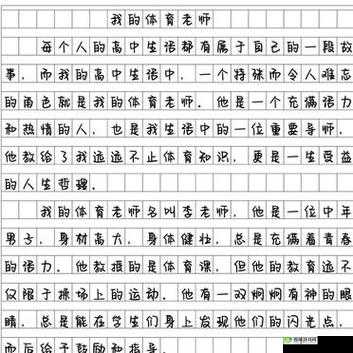 我的体育老师
每个人的高中生活都有属于自己的一段故
事,而我的高中生活中,一个特殊而令人难忘
的角色就是我的体育老师。他是一个充满活力
和热情的人,也是我生活中的一位重要导师。
他教给了我远远不止体育知识,更是一生受益
的人生哲理。
我的体育老师名叫李老师,他是一位中年
男子,身材高大,身体健壮,总是充满着青春
的活力。他教授的是体育课,但他的教育远不
仅限于操场上的运动。他有一双炯炯有神的眼
睛,总是能在学生们身上发现他们的闪光点,
而后给予鼓励和指导。